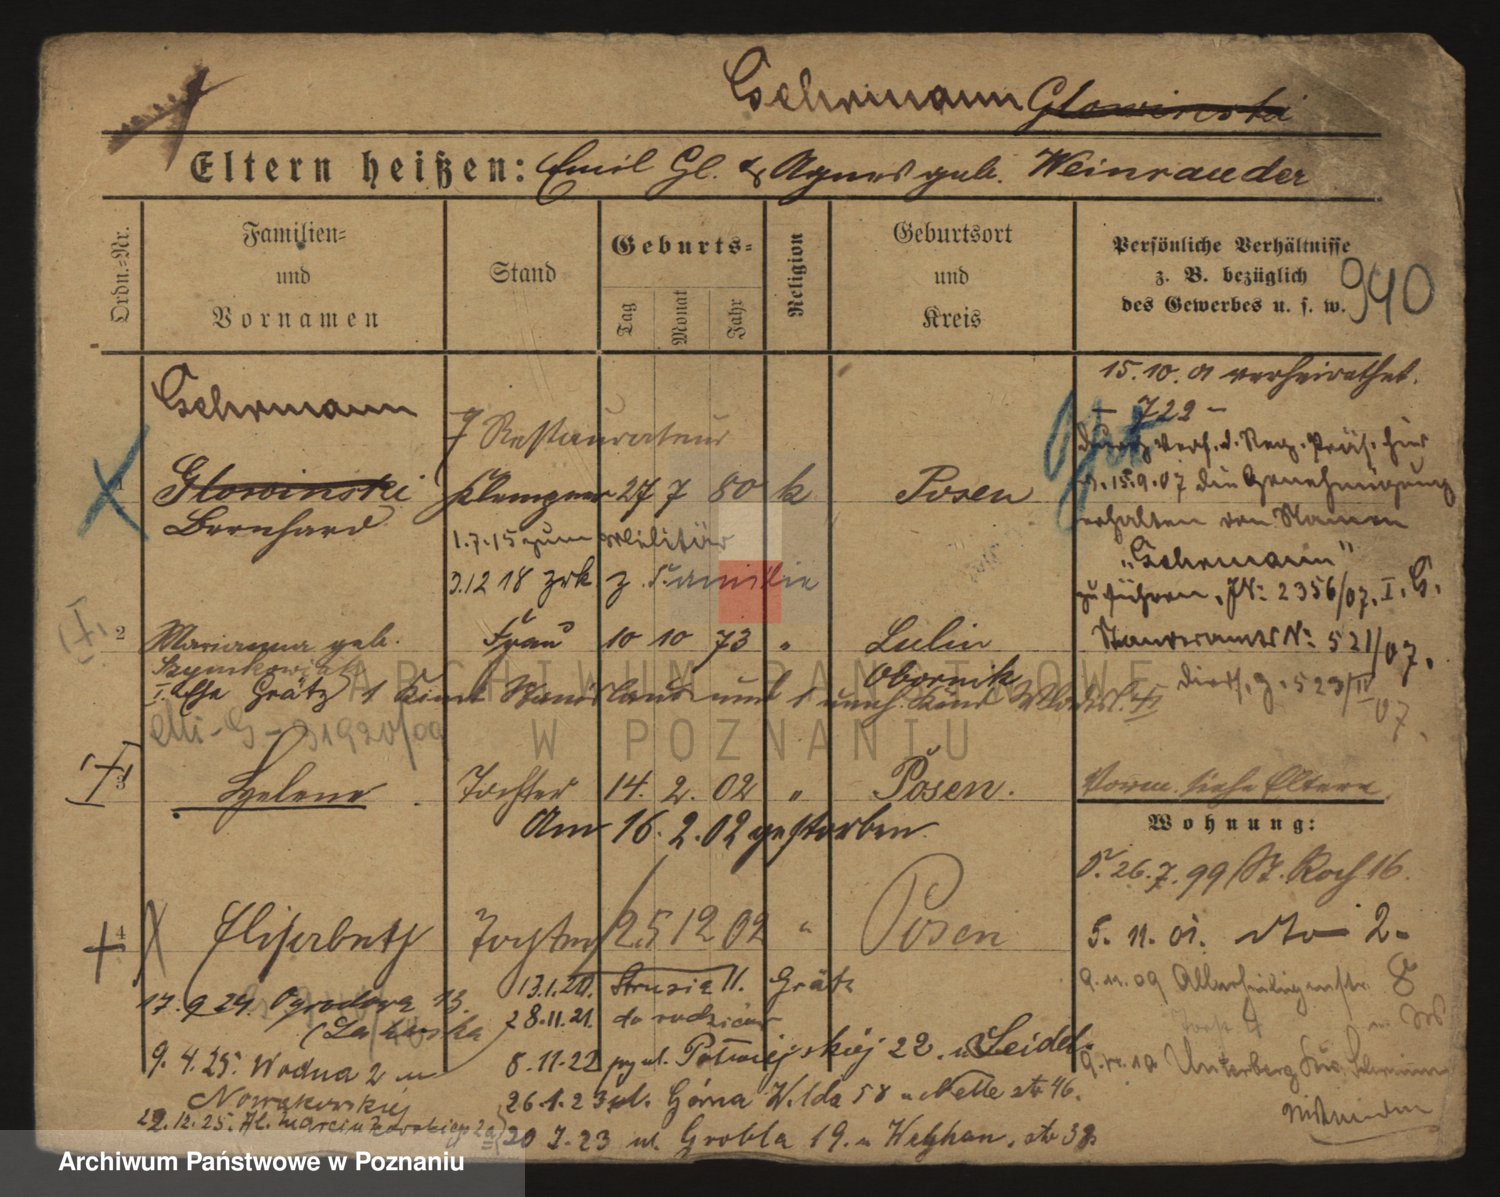 Gehrmann Glowinski
Eltern heißen: Emil Gl. & Agnes geb. Weinrauder
Ordn.-Nr.
Familien- und Vornamen
Stand
Geburts-
Tag
Monat
Jahr
Religion
Geburtsort und Kreis
Persönliche Verhältnisse
z. B. bezüglich
des Gewerbes u. s. w.
940
Gehrmann
Restaurateur
1 Glowinski Klempner 27 7 80 k Posen
Bernhard
1.7.15 zum Militär
3.12.18 zrk z. Familie
2 Marianna geb. Frau 10 10 73 " Lulin
Szymkowiak Obornik
I. Ehe Grätz 1 Kind Stanislaus und 1 Kind
3 Helene Tochter 14. 2. 02 " Posen.
Am 16. 2. 02 gestorben.
4 Elisabeth Tochter 25 12 02 " Posen
15.10.01 verheirathet.
- 722 -
durch Verf. d. Reg. Präs. hier
v. 15.9.07 die Genehmigung
erhalten den Namen
"Gehrmann"
zu führen. JN: 2356/07. I. G.
Standesamts N: 521/07.
dies. z. 523/II 07.
Vorm. siehe Eltern
Wohnung:
26.7.99 St. Roch 16.
5. 11. 01. dto 2.
9.11.09 Allerheiligenstr. 8
13.1.20. Strusia 11. Grätz
17. 9 24. Ogrodowa 13.
28.11.21. do rodziców
9. 4. 25. Wodna 2 u
Nowakowskiej
8.11.22 przy ul. Półwiejskiej 22. u Seidel.
26.1.23 ul. Górna Wilda 58 u Nelle str 46.
22.12.25. Al. Marcinkowskiego 2a
20 7.23 ul. Grobla 19. u str 38
ARCHIWUM PAŃSTWOWE
W POZNANIU
Archiwum Państwowe w Poznaniu